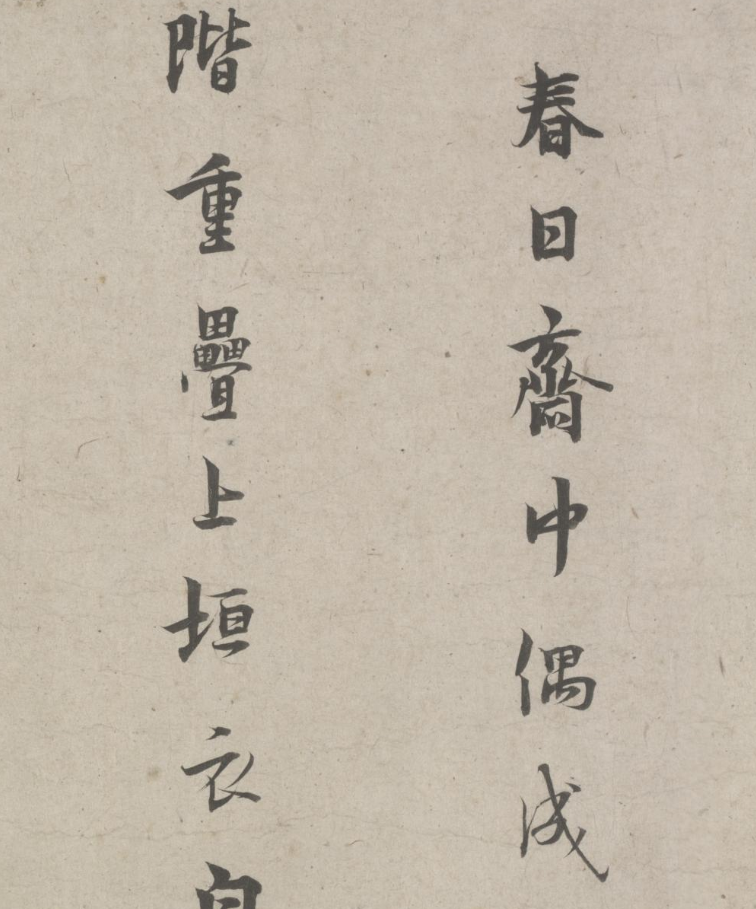 春日齋中偶成
階重疊上垣衣